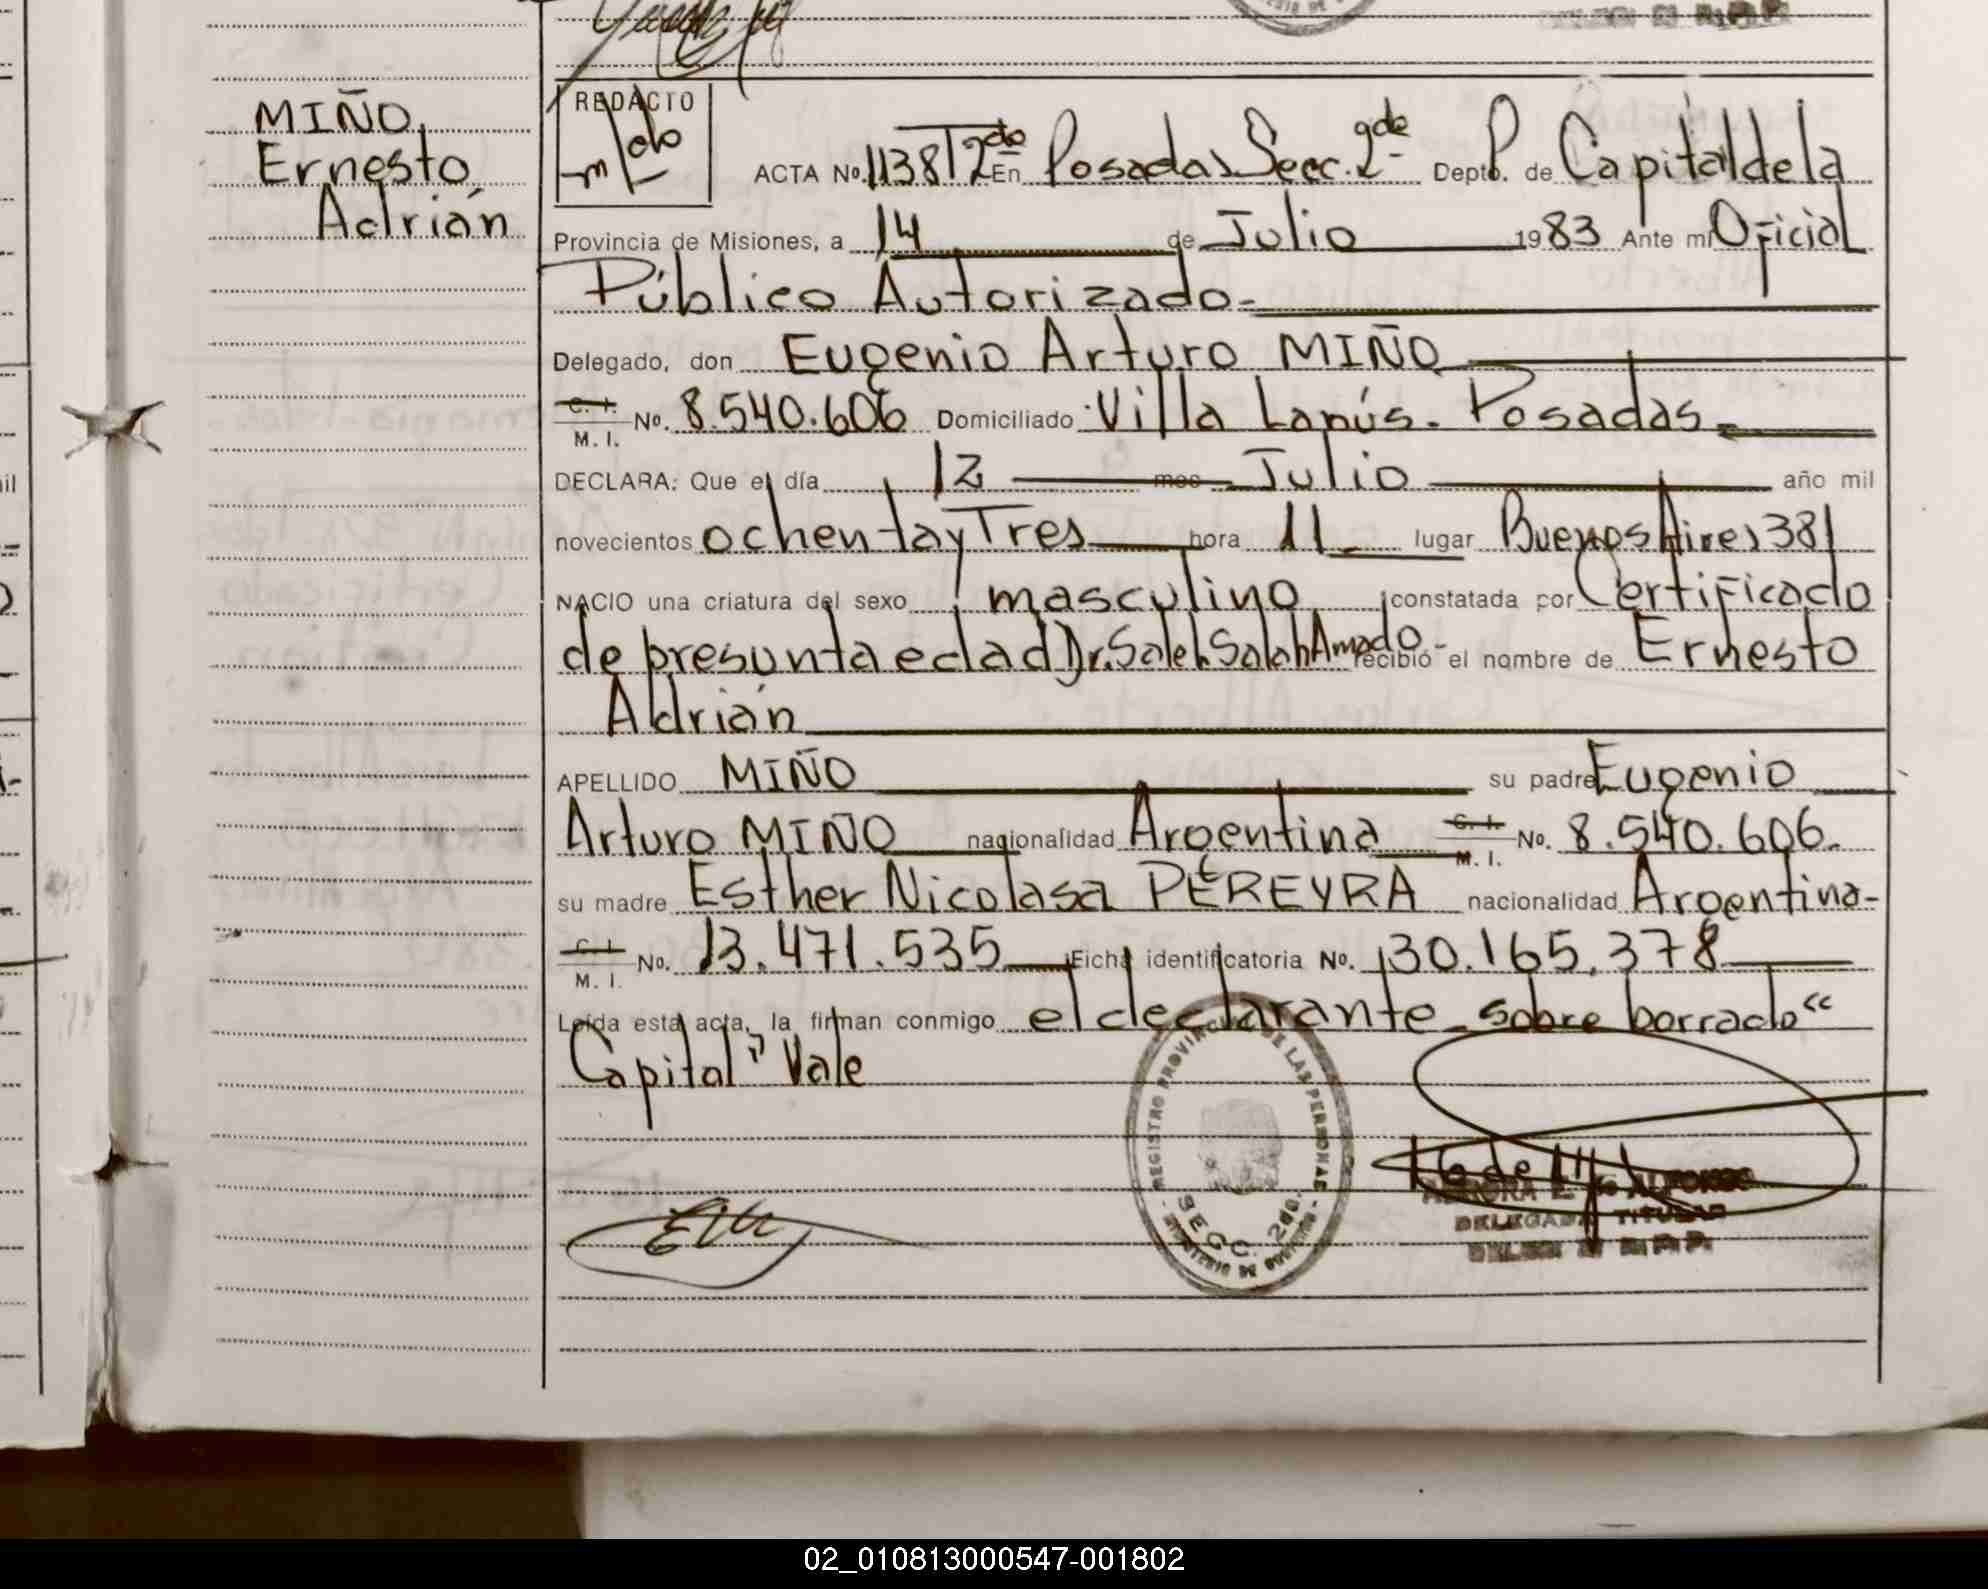 MIÑO,
Ernesto
Adrián
REDACTO
ACTA No. 1138 T 2do En Posadas Secc. 2da Depto. de Capital de la
Provincia de Misiones, a 14 de Julio 1983 Ante mi Oficial
Público Autorizado-
Delegado, don Eugenio Arturo MIÑO
C. I. M. I. No. 8.540.606 Domiciliado Villa Lanús - Posadas
DECLARA: Que el día 12 mes Julio año mil
novecientos ochenta y Tres hora 11 lugar Buenos Aires 381
NACIO una criatura del sexo masculino constatada por Certificado
de presunta edad Dr. Saleh Salah Amado- recibió el nombre de Ernesto
Adrián
APELLIDO MIÑO su padre Eugenio
Arturo MIÑO nacionalidad Argentina C. I. M. I. No. 8.540.606.
su madre Esther Nicolasa PEREYRA nacionalidad Argentina-
C. I. M. I. No. 13.471.535 Ficha identificatoria No. 30.165.378
Leída esta acta, la firman conmigo el declarante - sobre borrado "
Capital" Vale
REGISTRO PROVINCIAL DE LAS PERSONAS
SECC. 2da.
MINISTERIO DE GOBIERNO
ALFONSO
DELEGADA TITULAR
02_010813000547-001802